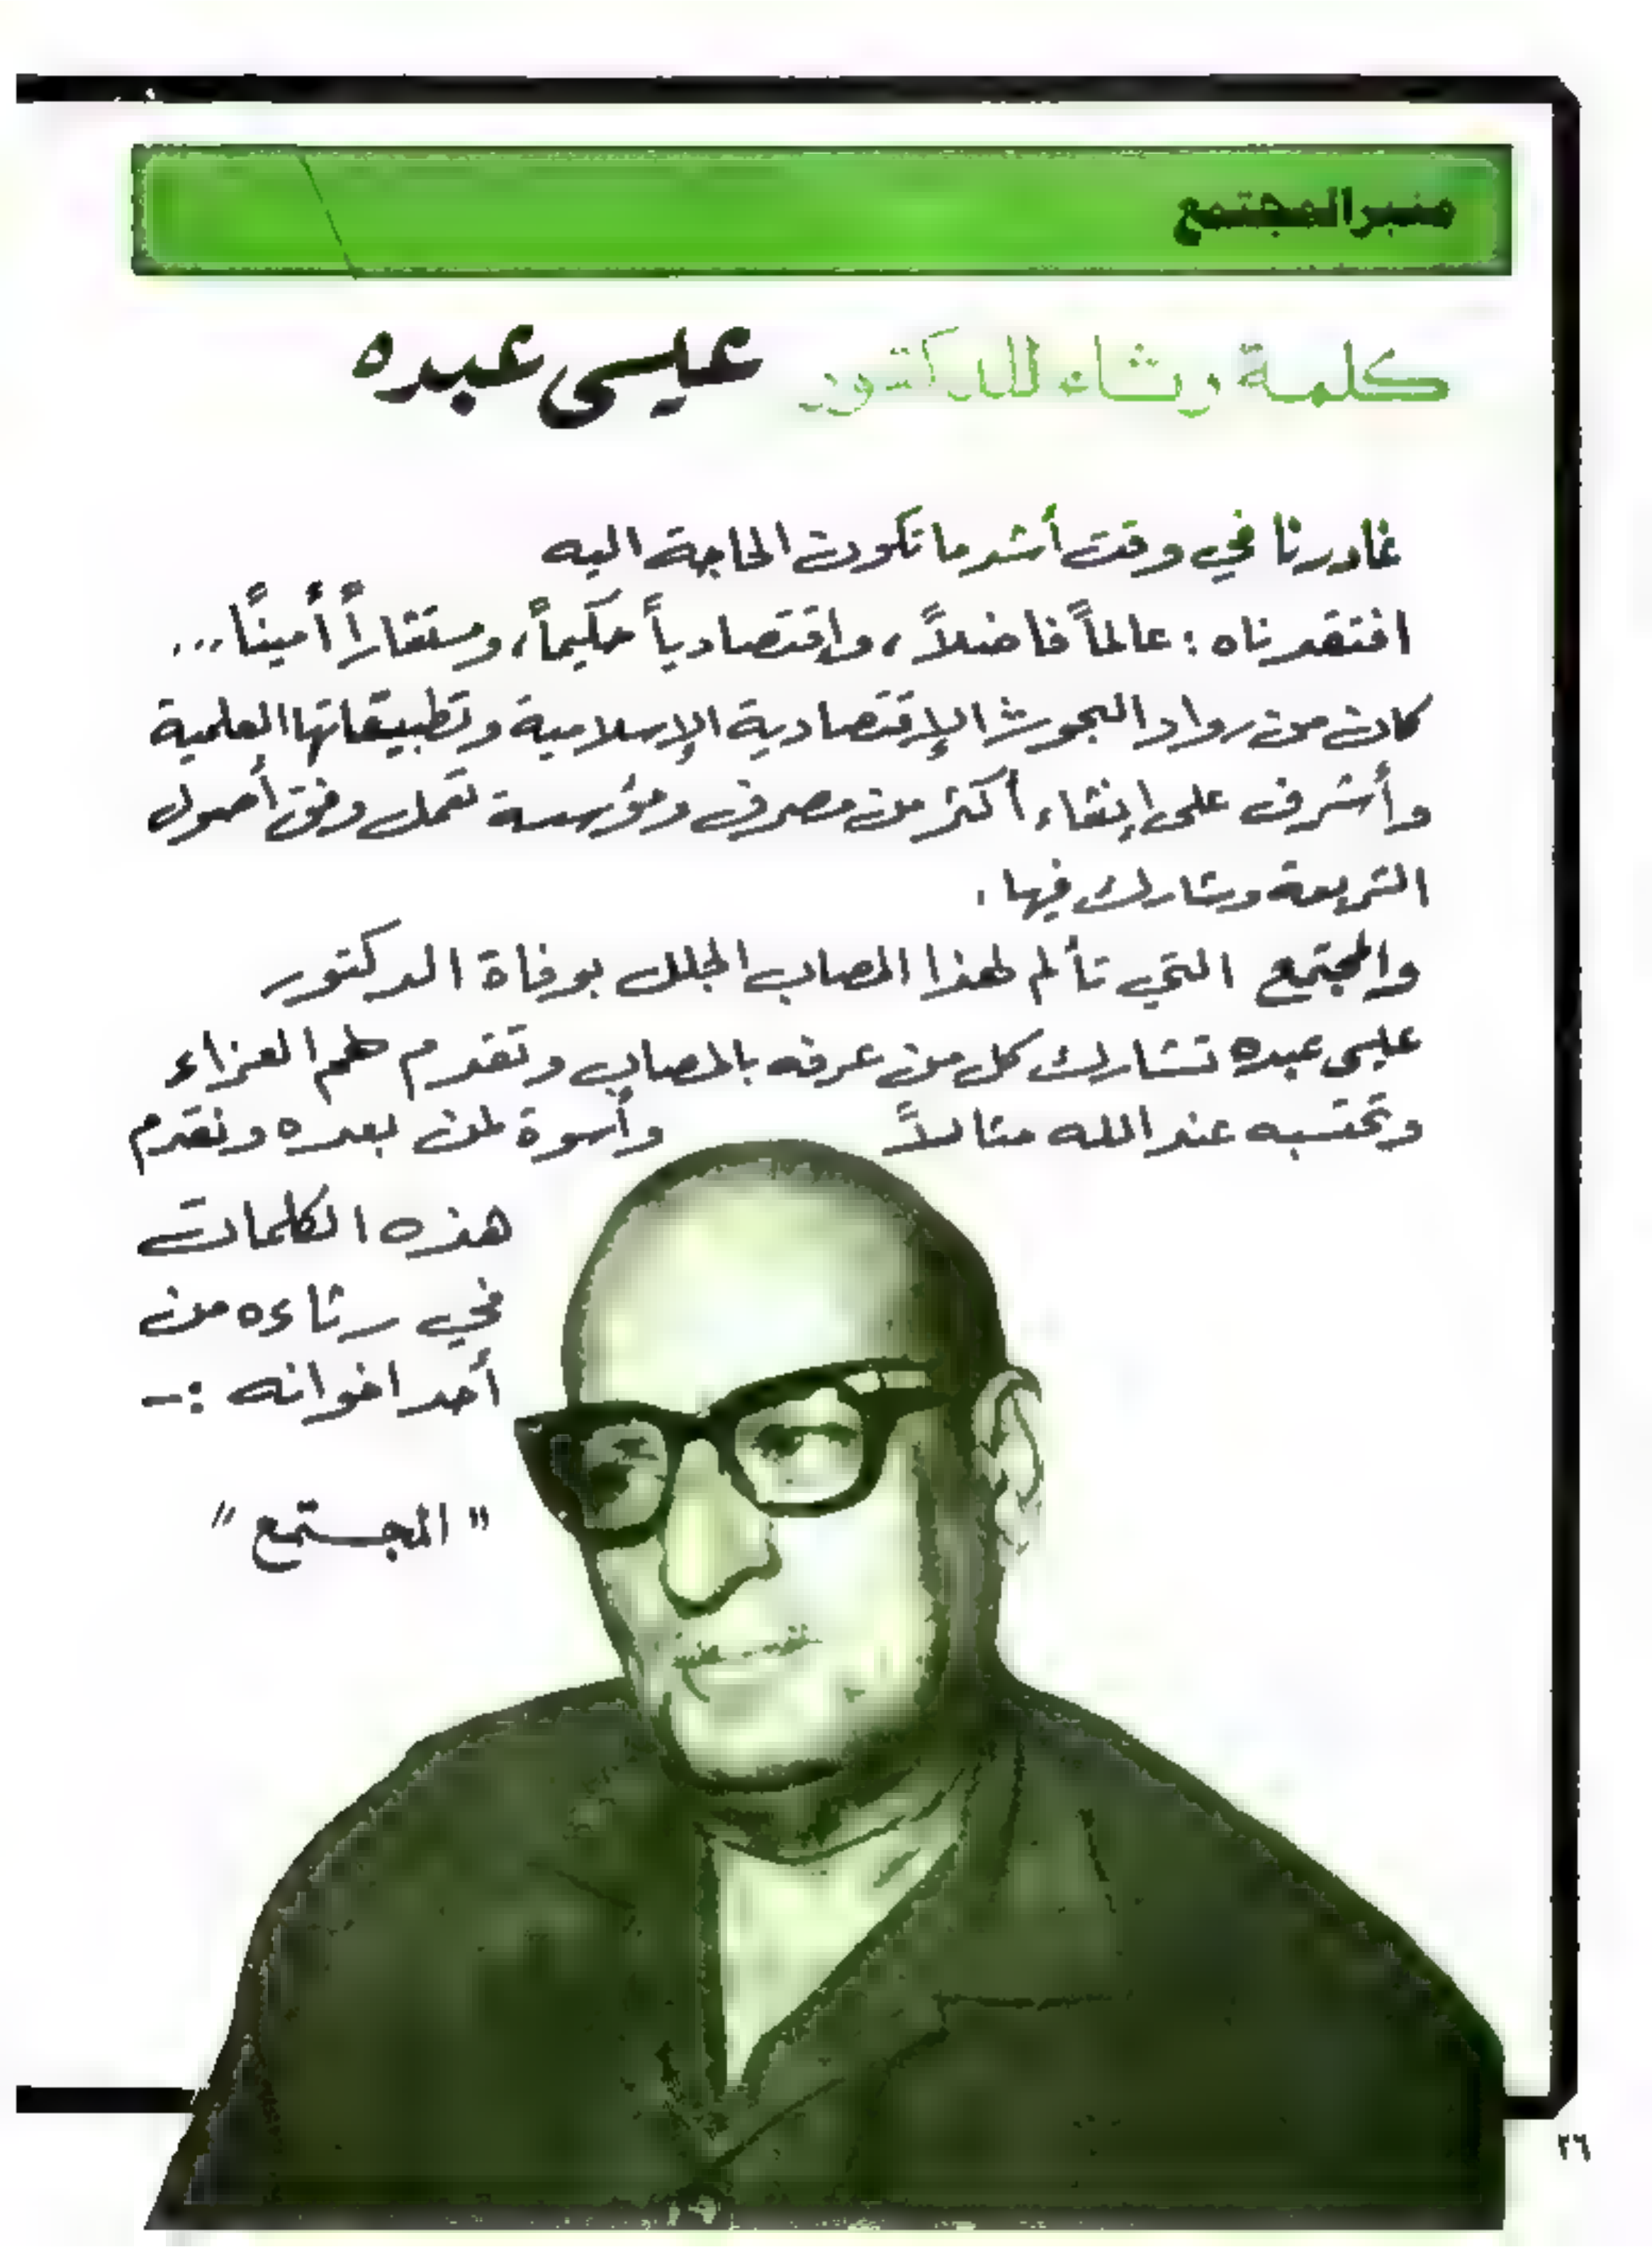 منبر المجتمع
كلمة رثاء للدكتور عيسى عبده
غادرنا في وقت أشد ما تكون الحاجة اليه
افتقدناه : عالماً فاضلاً، وإقتصادياً حكيماً، ومستشاراً أميناً...
كان من رواد البحوث الإقتصادية الإسلامية وتطبيقاتها العلمية
وأشرف على إنشاء أكثر من مصرف ومؤسسة تعمل وفق أصول
الشريعة وشارك فيها .
والمجتمع التي تألم لهذا المصاب الجلل بوفاة الدكتور
عيسى عبده تشارك كل من عرفه بالمصاب وتقدم لهم العزاء
وتحتسبه عند الله مثالاً وأسوة لمن بعده ونقدم
هذه الكلمات
في رثاءه من
أحد اخوانه :-
"المجتمع"
٢٦